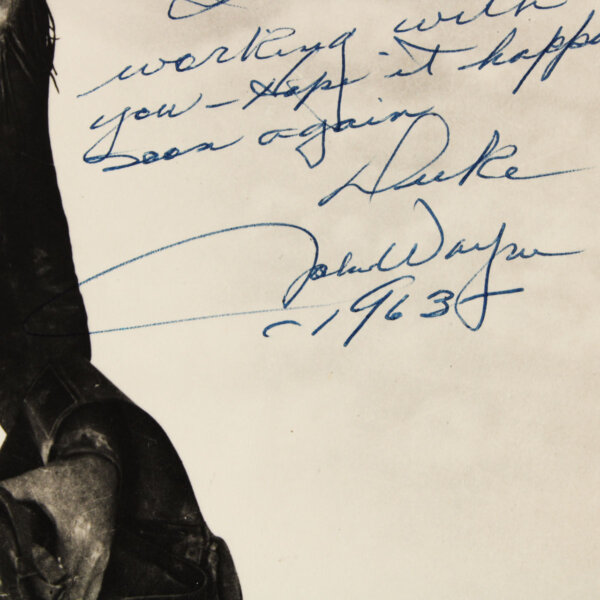 working with
you - Hope it happ
soon again
Duke
John Wayne
- 1963 -